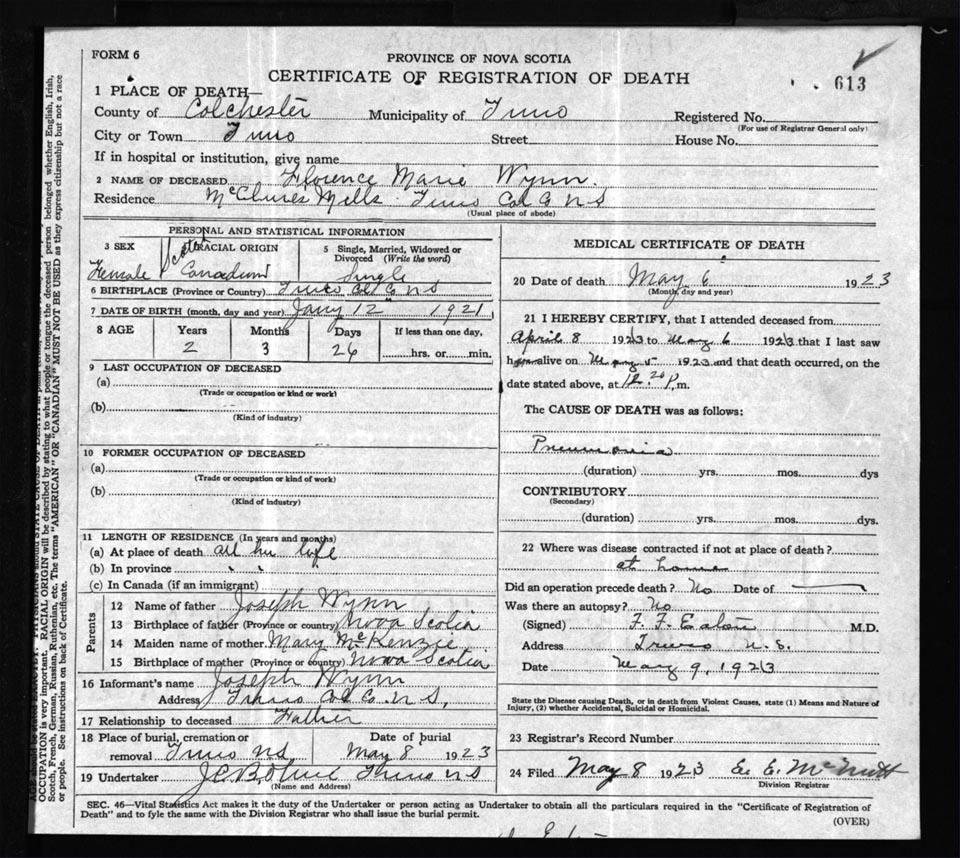 FORM 6
PROVINCE OF NOVA SCOTIA
CERTIFICATE OF REGISTRATION OF DEATH
613
1 PLACE OF DEATH—
County of Colchester Municipality of Truro Registered No.
(For use of Registrar General only)
City or Town Truro Street House No.
If in hospital or institution, give name
2 NAME OF DECEASED Florence Marie Wynn.
Residence McClures Mills Truro Col Co N S
(Usual place of abode)
PERSONAL AND STATISTICAL INFORMATION
3 SEX 4 RACIAL ORIGIN 5 Single, Married, Widowed or Divorced (Write the word)
Female Scotch Canadian Single
6 BIRTHPLACE (Province or Country) Truro Col Co N S
7 DATE OF BIRTH (month, day and year) Jany 12 1921
8 AGE Years Months Days If less than one day,
2 3 26 hrs. or min.
9 LAST OCCUPATION OF DECEASED
(a)
(Trade or occupation or kind or work)
(b)
(Kind of industry)
10 FORMER OCCUPATION OF DECEASED
(a)
(Trade or occupation or kind of work)
(b)
(Kind of industry)
11 LENGTH OF RESIDENCE (In years and months)
(a) At place of death all her life
(b) In province " "
(c) In Canada (if an immigrant)
Parents
12 Name of father Joseph Wynn
13 Birthplace of father (Province or country) Nova Scotia
14 Maiden name of mother Mary McKenzie
15 Birthplace of mother (Province or country) Nova Scotia
16 Informant's name Joseph Wynn
Address Truro Col Co. N S,
17 Relationship to deceased Father
18 Place of burial, cremation or Date of burial
removal Truro NS May 8 1923
19 Undertaker Truro N S
(Name and Address)
MEDICAL CERTIFICATE OF DEATH
20 Date of death May 6 1923
(Month, day and year)
21 I HEREBY CERTIFY, that I attended deceased from
April 8 1923 to May 6 1923 that I last saw
h alive on May 5 1923 and that death occurred, on the
date stated above, at 12.20 P.m.
The CAUSE OF DEATH was as follows:
Pneumonia
(duration) yrs. mos. dys
CONTRIBUTORY
(Secondary)
(duration) yrs. mos. dys.
22 Where was disease contracted if not at place of death?
at home
Did an operation precede death? No Date of
Was there an autopsy? No
(Signed) F. F. Eaton M.D.
Address Truro N.S.
Date May 9, 1923
State the Disease causing Death, or in death from Violent Causes, state (1) Means and Nature of
Injury, (2) whether Accidental, Suicidal or Homicidal.
23 Registrar's Record Number
24 Filed May 8 1923 E. E. McNutt
Division Registrar
SEC. 46—Vital Statistics Act makes it the duty of the Undertaker or person acting as Undertaker to obtain all the particulars required in the "Certificate of Registration of
Death" and to fyle the same with the Division Registrar who shall issue the burial permit.
(OVER)
OCCUPATION is very important. RACIAL ORIGIN will be described by stating to what people or tongue the deceased person belonged whether English, Irish,
Scotch, French, German, Russian, Ruthenian, etc. The terms "AMERICAN" OR "CANADIAN" MUST NOT BE USED as they express citizenship but not a race
or people. See instructions on back of Certificate.